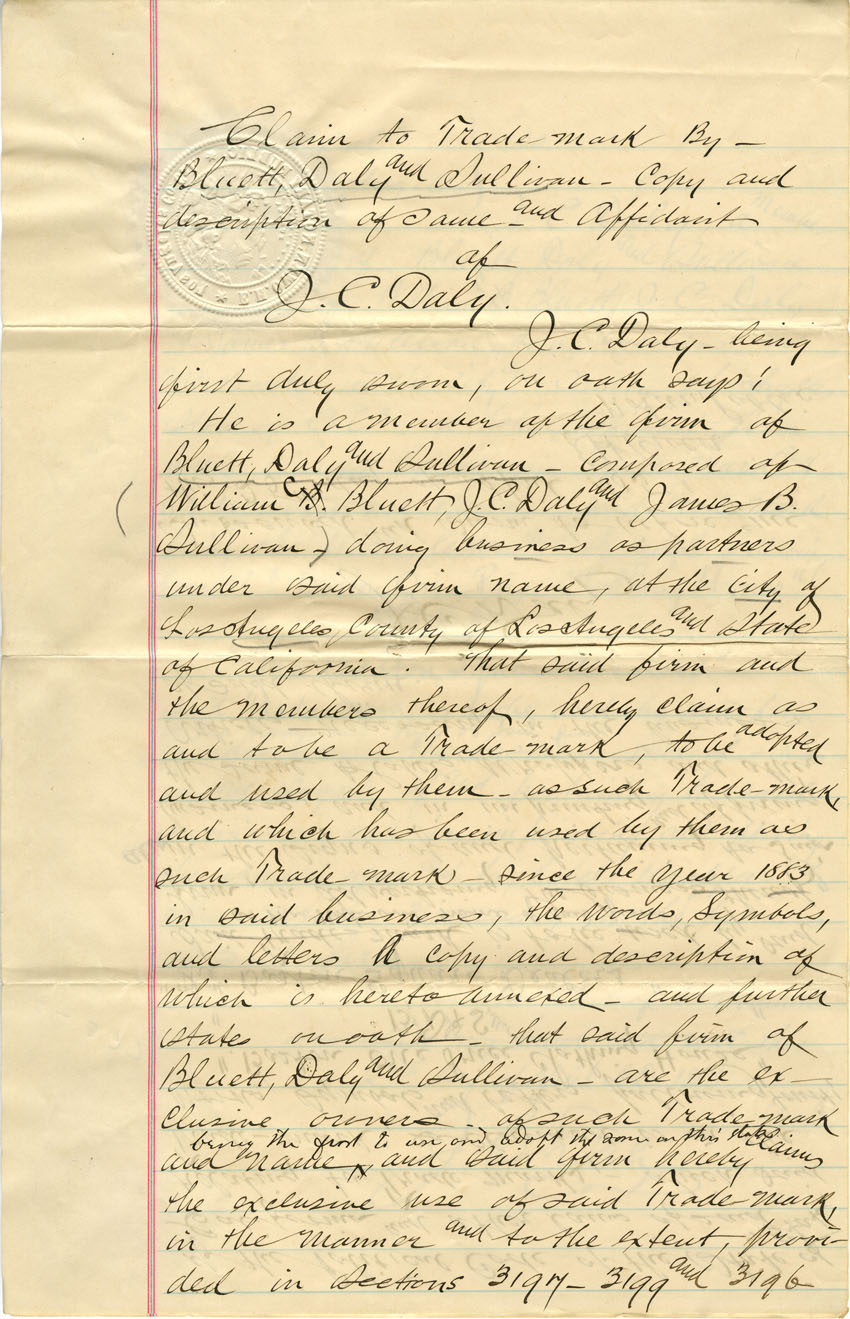 Claim to Trade mark By –
Bluett, Daly and Sullivan – Copy and
description of same – and Affidavit
of
J. C. Daly.
J. C. Daly – being
first duly sworn, on oath says:
He is a member of the firm of
Bluett, Daly and Sullivan – composed of
(William C. Bluett, J. C. Daly and James B.
Sullivan –) doing business as partners
under said firm name, at the City of
Los Angeles, County of Los Angeles and State
of California. That said firm and
the members thereof, hereby claim as
and to be a Trade mark, to be adopted
and used by them – as such Trade-mark,
and which has been used by them as
such Trade mark – since the year 1883
in said business, the words, Symbols,
and letters A copy and description of
which is hereto annexed – and further
states on oath – that said firm of
Bluett, Daly and Sullivan – are the ex-
clusive owners – of such Trade mark
being the first to use and adopt the same in this state
and name, and said firm hereby claims
the exclusive use of said Trade mark,
in the manner and to the extent, provi-
ded in Sections 3197 – 3199 and 3196